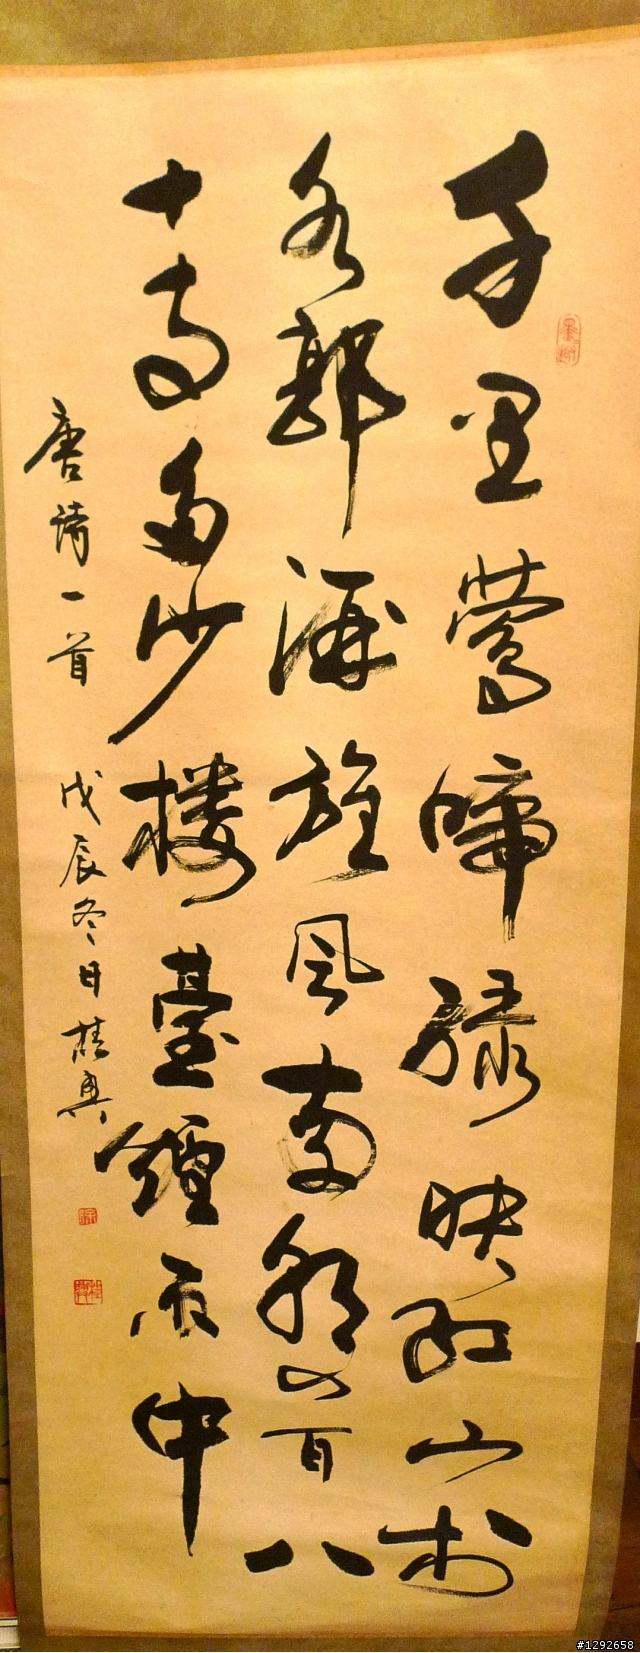 千里鶯啼綠映紅山村
水郭酒旗風南朝四百八
十寺多少樓臺煙雨中
唐詩一首 戊辰冬日桂興
#1292658